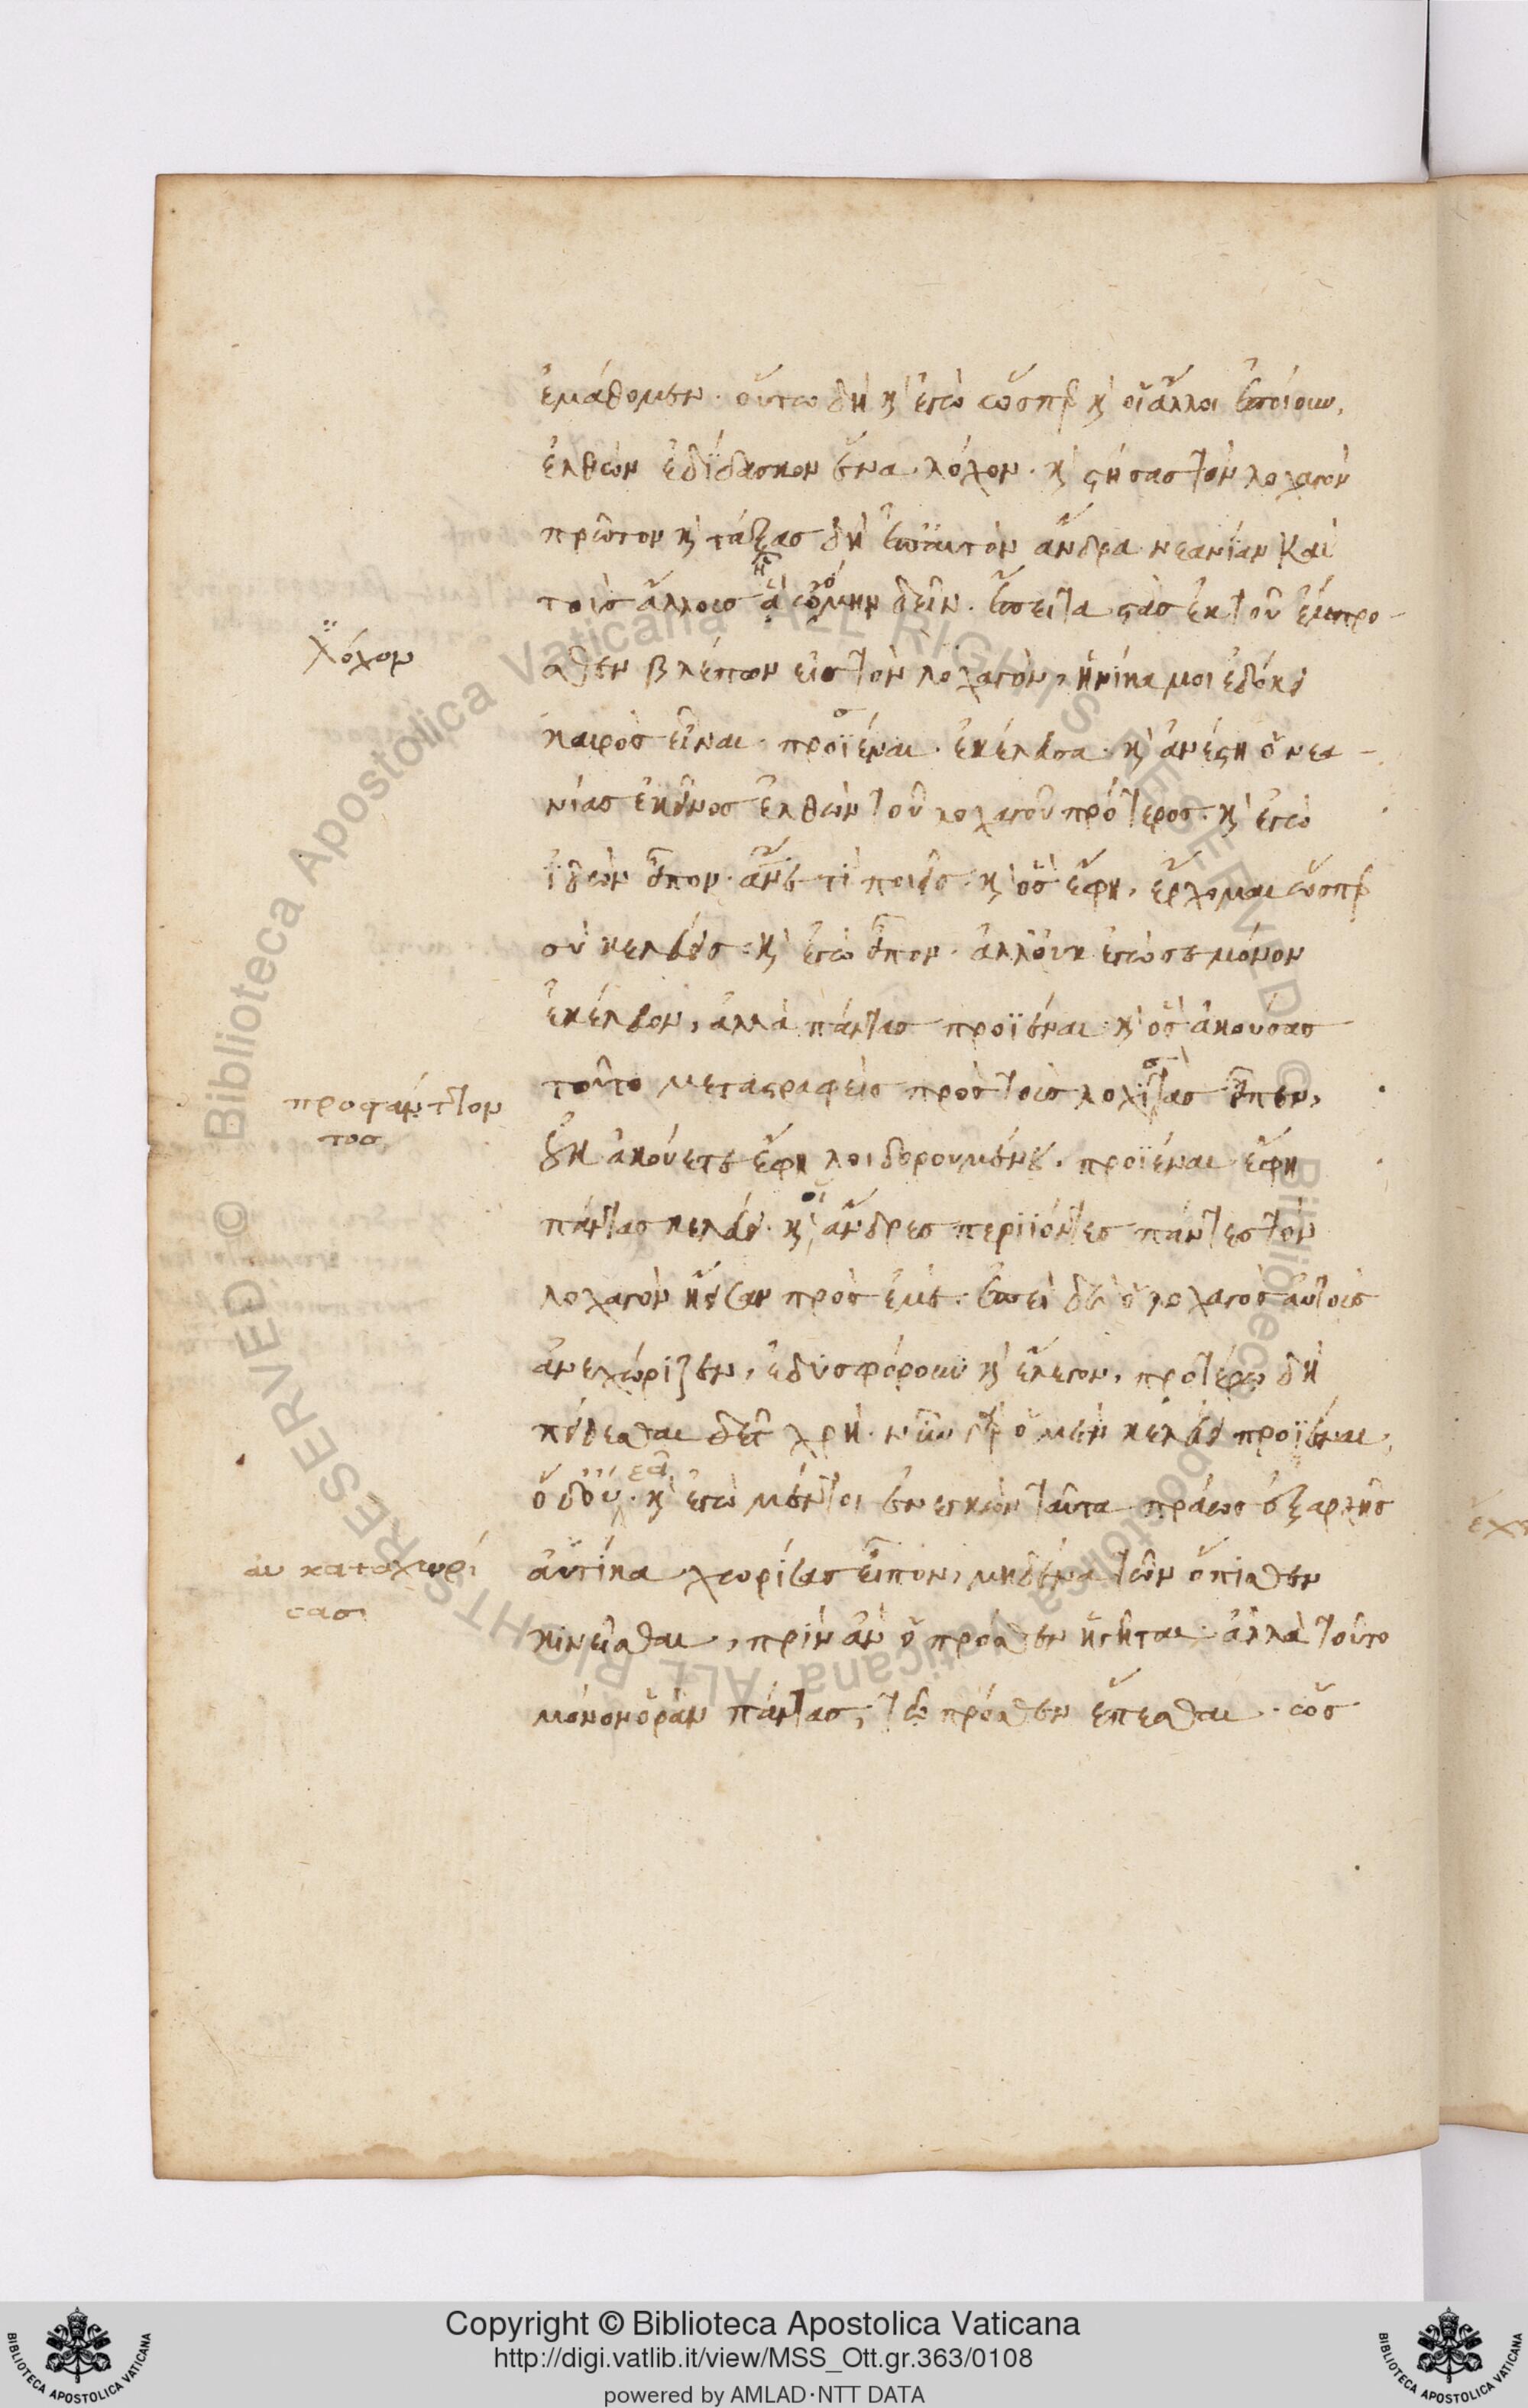 ἐμάθομεν. οὕτω δὴ κ̀ ἐγὼ ὥσπερ κ̀ οἱ ἄλλοι ἐποίουν,
ἐλθὼν ἐδίδασκον ἕνα λόχον. κ̀ στήσας τὸν λοχαγὸν
πρῶτον κ̀ τάξας δὴ ἐπ' αὐτὸν ἄνδρα νεανίαν καὶ
τοὺς ἄλλους ᾗ ᾤμην δεῖν. ἔπειτα στὰς ἐκ τοῦ ἔμπρο-
λόχον
σθεν βλέπων εἰς τὸν λοχαγὸν, ἡνίκα μοι ἐδόκει
καιρὸς εἶναι. προϊέναι ἐκέλευσα. κ̀ ἀνέστη ὁ νεα-
νίας ἐκεῖνος ἐλθὼν τοῦ λοχαγοῦ πρότερος. κ̀ ἐγὼ
ἰδὼν εἶπον. ἄνε τί ποιεῖς. κ̀ ὃς ἔφη, ἔρχομαι ὥσπερ
σὺ κελεύεις. κ̀ ἐγὼ εἶπον. ἀλλ' οὐκ ἐγώ σε μόνον
ἐκέλευον, ἀλλὰ πάντας προϊέναι. κ̀ ὃς ἀκούσας
τοῦτο μεταστραφεὶς πρὸς τοὺς λοχίτας εἶπεν,
προστάττον
τος
οὐκ ἀκούετε ἔφη λοιδορουμένου. προϊέναι ἔφη
πάντας κελεύει. κ̀ οἱ ἄνδρες περιϊόντες πάντες τὸν
λοχαγὸν ᾔεσαν πρὸς ἐμέ. ἐπεὶ δὲ ὁ λοχαγὸς αὐτοὺς
ἀνεχώριζεν, ἐδυσφόρουν κ̀ ἔλεγον, προτέρῳ δὴ
πείθεσθαι δεῖ χρή. νῦν γὰρ ὁ μὲν κελεύει προϊέναι,
ὁ δ' οὐ. ἐᾷ κ̀ ἐγὼ μέντοι ἐνεγκὼν ταῦτα πράως ἐξαρχῆς
αὖ καταχωρί
σας
αὐτίκα χωρίσας εἶπον, μηδένα τῶν ὄπισθεν
κινεῖσθαι, πρὶν ἂν ὁ πρόσθεν ἡγῆται. ἀλλὰ τοῦτο
μόνον ὁρᾶν πάντας, τῷ πρόσθεν ἕπεσθαι. ὡς
Copyright © Biblioteca Apostolica Vaticana
http://digi.vatlib.it/view/MSS_Ott.gr.363/0108
powered by AMLAD·NTT DATA